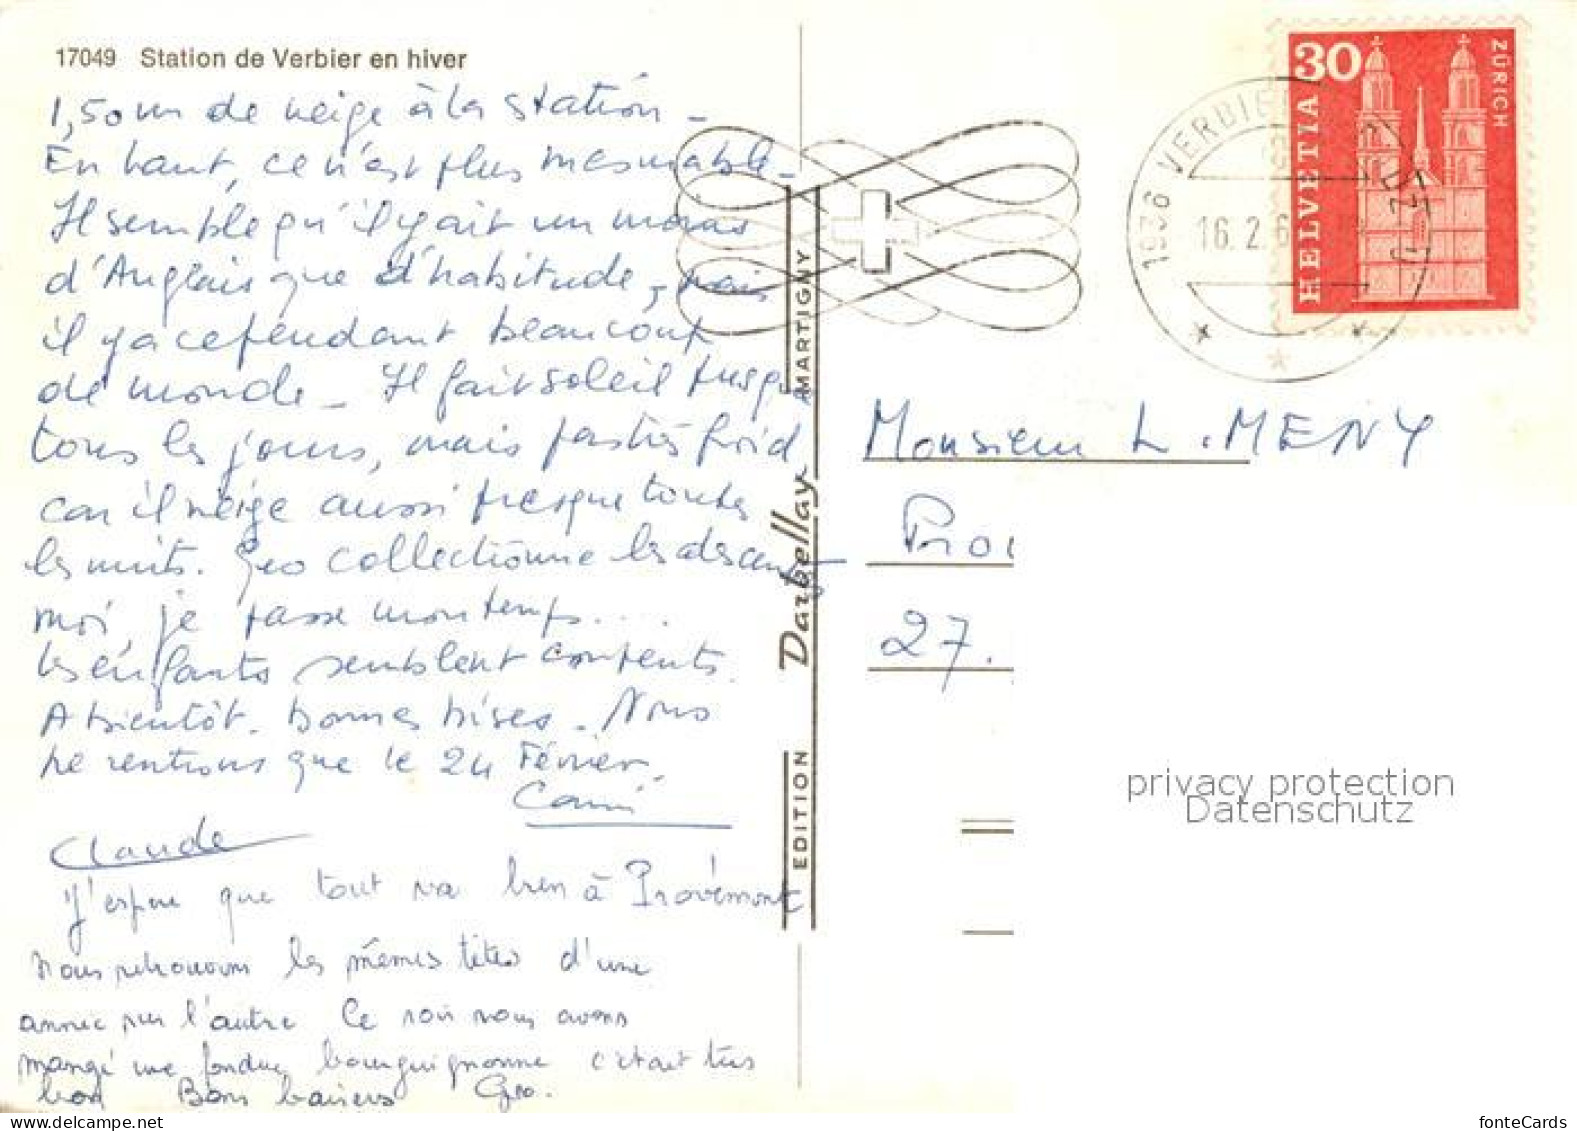 17049 Station de Verbier en hiver
1,50 m de neige à la station -
En haut, ce n'est plus mesurable -
Il semble qu'il y ait un moins
d'Anglais que d'habitude, mais
il y a cependant beaucoup
de monde - Il fait soleil presque
tous les jours, mais pas très froid
car il neige aussi presque toutes
les nuits. Géo collectionne les descentes
moi, je passe mon temps....
les enfants semblent contents.
A bientôt. Bonnes bises. Nous
ne rentrons que le 24 Février.
Claude
J'espère que tout va bien à Provémont
Nous retrouvons les mêmes têtes d'une
année sur l'autre Ce soir nous avons
mangé une fondue bourguignonne c'était très
bon Bons baisers Géo.
EDITION Darbellay MARTIGNY
1936 VERBIER
16.2.6
30
HELVETIA
ZÜRICH
Monsieur L. MENY
27.
privacy protection
Datenschutz
fonteCards